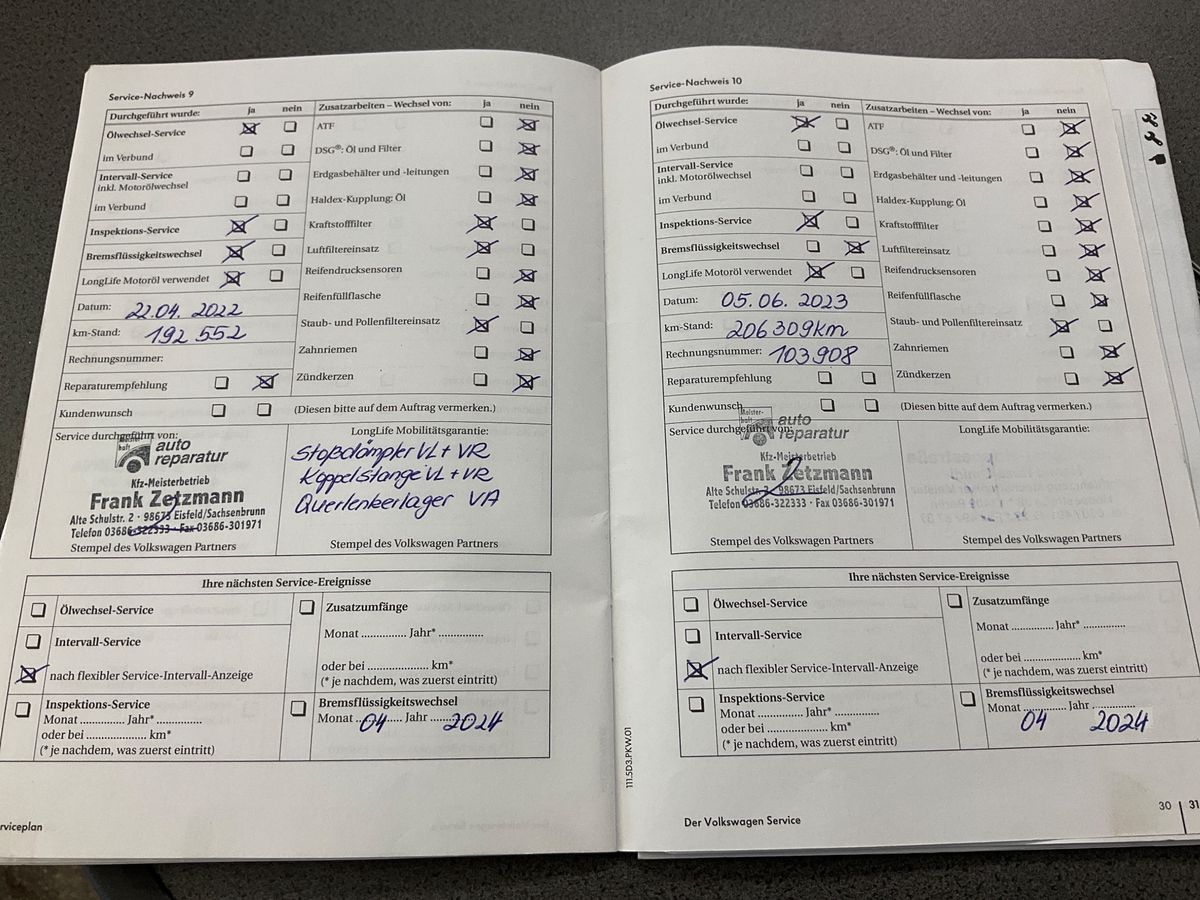 Service-Nachweis 9
Durchgeführt wurde: ja nein
Ölwechsel-Service
im Verbund
Intervall-Service
inkl. Motorölwechsel
im Verbund
Inspektions-Service
Bremsflüssigkeitswechsel
LongLife Motoröl verwendet
Datum: 22.04.2022
km-Stand: 192 552
Rechnungsnummer:
Reparaturempfehlung
Kundenwunsch
Zusatzarbeiten – Wechsel von: ja nein
ATF
DSG®: Öl und Filter
Erdgasbehälter und -leitungen
Haldex-Kupplung: Öl
Kraftstofffilter
Luftfiltereinsatz
Reifendrucksensoren
Reifenfüllflasche
Staub- und Pollenfiltereinsatz
Zahnriemen
Zündkerzen
(Diesen bitte auf dem Auftrag vermerken.)
Service durchgeführt von:
Meister-
haft
auto
reparatur
Kfz-Meisterbetrieb
Frank Zetzmann
Alte Schulstr. 2 · 98673 Eisfeld/Sachsenbrunn
Telefon 03686-322333 · Fax 03686-301971
Stempel des Volkswagen Partners
LongLife Mobilitätsgarantie:
Stoßdämpfer VL + VR
Koppelstange VL + VR
Querlenkerlager VA
Stempel des Volkswagen Partners
Ihre nächsten Service-Ereignisse
Ölwechsel-Service
Intervall-Service
nach flexibler Service-Intervall-Anzeige
Inspektions-Service
Monat ............ Jahr* ............
oder bei .................... km*
(* je nachdem, was zuerst eintritt)
Zusatzumfänge
Monat ............ Jahr* ............
oder bei .................... km*
(* je nachdem, was zuerst eintritt)
Bremsflüssigkeitswechsel
Monat 04 Jahr 2024
rviceplan
Service-Nachweis 10
Durchgeführt wurde: ja nein
Ölwechsel-Service
im Verbund
Intervall-Service
inkl. Motorölwechsel
im Verbund
Inspektions-Service
Bremsflüssigkeitswechsel
LongLife Motoröl verwendet
Datum: 05.06.2023
km-Stand: 206309km
Rechnungsnummer: 103908
Reparaturempfehlung
Kundenwunsch
Zusatzarbeiten – Wechsel von: ja nein
ATF
DSG®: Öl und Filter
Erdgasbehälter und -leitungen
Haldex-Kupplung: Öl
Kraftstofffilter
Luftfiltereinsatz
Reifendrucksensoren
Reifenfüllflasche
Staub- und Pollenfiltereinsatz
Zahnriemen
Zündkerzen
(Diesen bitte auf dem Auftrag vermerken.)
Service durchgeführt von:
Meister-
haft
auto
reparatur
Kfz-Meisterbetrieb
Frank Zetzmann
Alte Schulstr. 2 · 98673 Eisfeld/Sachsenbrunn
Telefon 03686-322333 · Fax 03686-301971
Stempel des Volkswagen Partners
LongLife Mobilitätsgarantie:
Stempel des Volkswagen Partners
Ihre nächsten Service-Ereignisse
Ölwechsel-Service
Intervall-Service
nach flexibler Service-Intervall-Anzeige
Inspektions-Service
Monat ............ Jahr* ............
oder bei .................... km*
(* je nachdem, was zuerst eintritt)
Zusatzumfänge
Monat ............ Jahr* ............
oder bei .................... km*
(* je nachdem, was zuerst eintritt)
Bremsflüssigkeitswechsel
Monat 04 Jahr 2024
111.5D3.PKW.01
Der Volkswagen Service
30 31